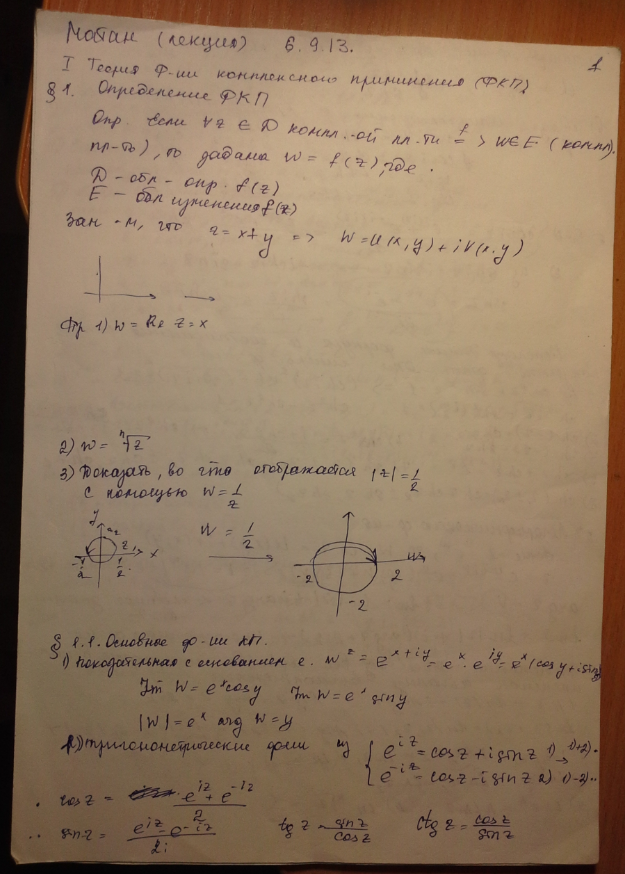 Матан (лекция) 6.9.13.
1
I Теория Ф-ии комплексного применения (ФКП)
§ 1. Определение ФКП
Опр. Если ∀ z ∈ D компл.-ой пл-ти =f> W ∈ E (компл.
пл-ть), то задана W = f(z), где
D - обл - опр. f(z)
E - обл изменения f(z)
Зам-м, что z = x+y => W = U(x,y) + iV(x,y)
Пр. 1) W = Re z = x
2) W = ⁿ√z
3) Показать, во что отображается |z| = 1/2
с помощью W = 1/z
y
x
-1/2
1/2
W = 1/2
-2
2
W
-2
§ 1.1. Основное ф-ии КП.
1) Показательная с основанием e. W^z = e^(x+iy) = e^x · e^(iy) = e^x (cos y + i sin y)
Im W = e^x cos y Im W = e^x sin y
|W| = e^x arg W = y
2) Тригонометрические из { e^(iz) = cos z + i sin z 1) → 1)+2) ·
e^(-iz) = cos z - i sin z 2) 1)-2) ··
· cos z = (e^(iz) + e^(-iz))/2
·· sin z = (e^(iz) - e^(-iz))/2i tg z = sin z/cos z ctg z = cos z/sin z